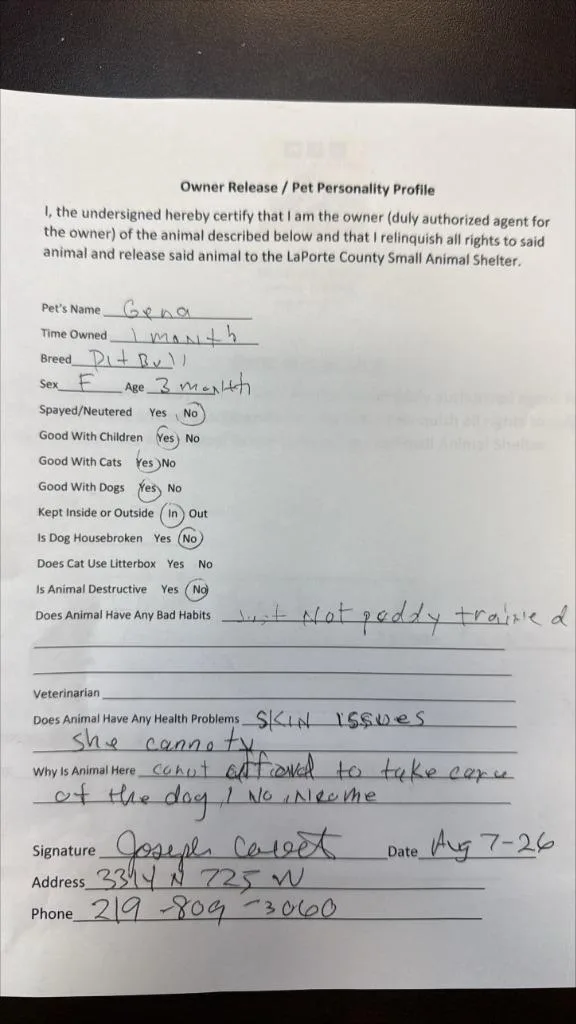 Owner Release / Pet Personality Profile
I, the undersigned hereby certify that I am the owner (duly authorized agent for
the owner) of the animal described below and that I relinquish all rights to said
animal and release said animal to the LaPorte County Small Animal Shelter.
Pet's Name Gena
Time Owned 1 month
Breed Pit Bull
Sex F Age 3 month
Spayed/Neutered Yes No
Good With Children Yes No
Good With Cats Yes No
Good With Dogs Yes No
Kept Inside or Outside In Out
Is Dog Housebroken Yes No
Does Cat Use Litterbox Yes No
Is Animal Destructive Yes No
Does Animal Have Any Bad Habits Just Not poddy trained
Veterinarian
Does Animal Have Any Health Problems SKIN issues
she
Why Is Animal Here to take care
of the dog, No iNcome
Signature Joseph Date Aug 7-26
Address 3314 N 725 W
Phone 219-809-3060